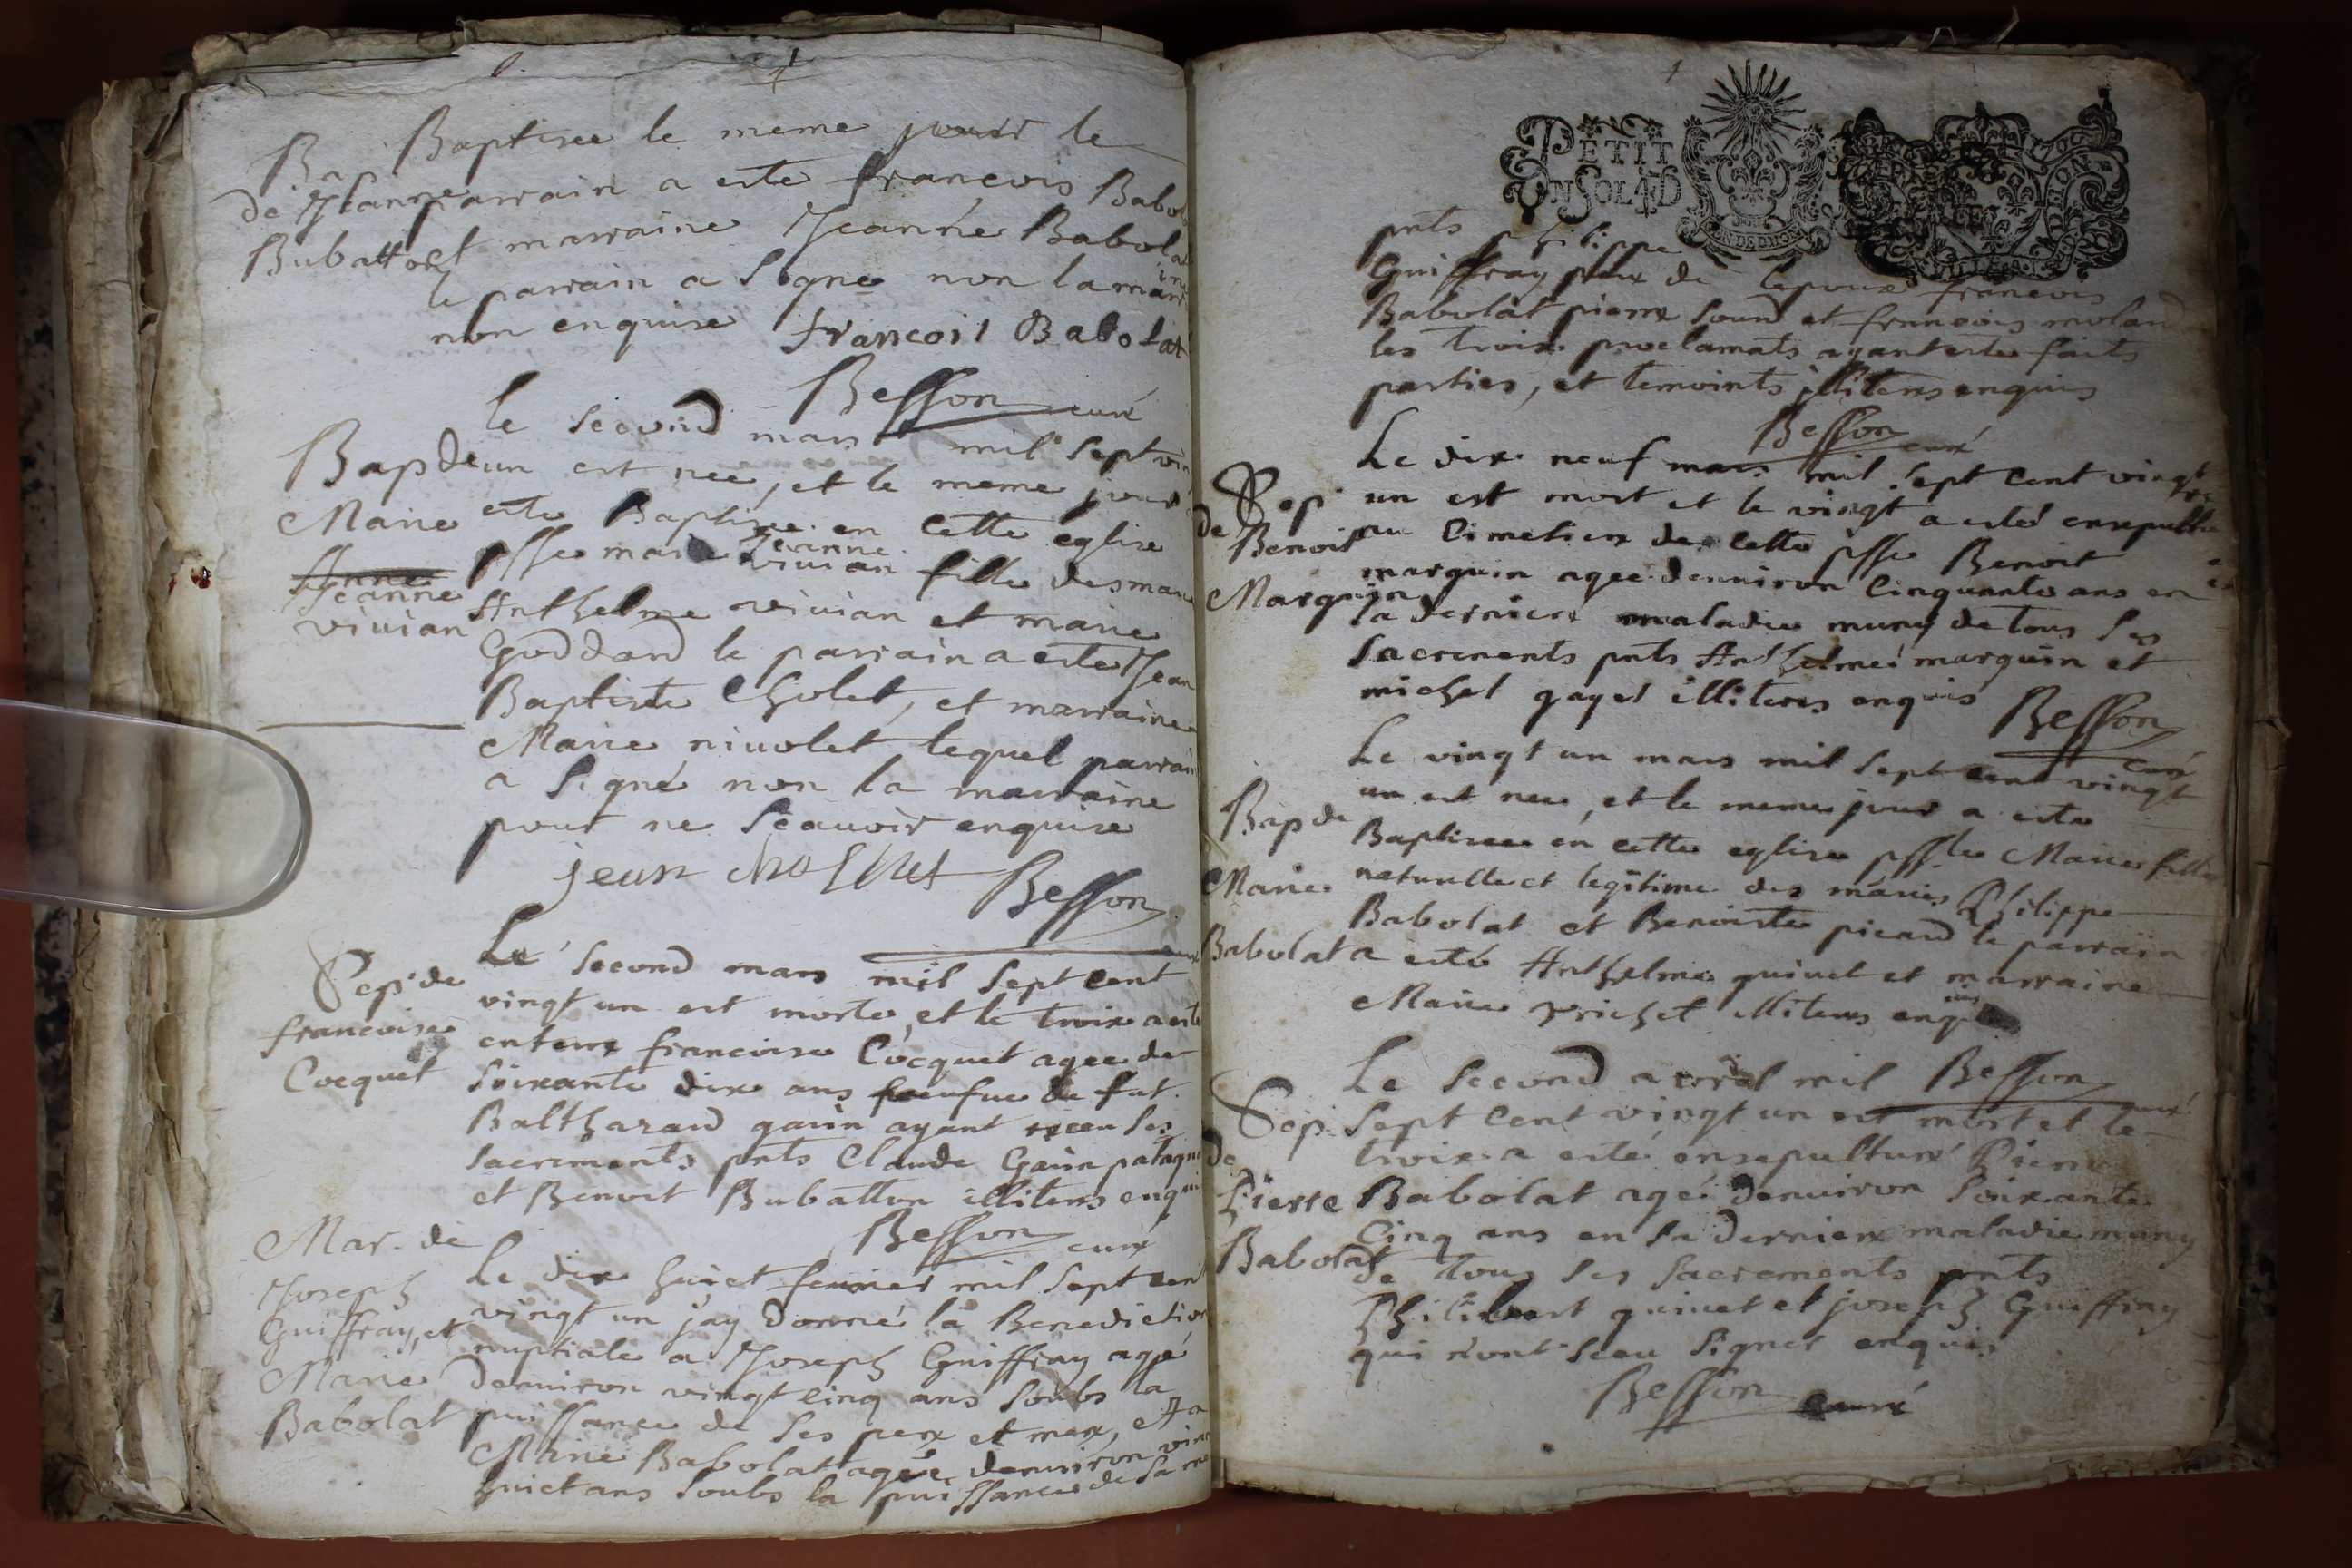 Ba
de Jeanne
Bubatton
Baptisee le meme jour le
parrain a este francois Babol
et marraine Jeanne Babolat
le parrain a signe non la marr
ine
non enquise francois Babolat
Besson curé
Bap de
Marie
Anne
Jeanne
vivian
le second mars mil sept vin
un est nee, et le meme jour
este Baptisee en cette eglise
psse marie Jeanne
vivian fille des mari
Anthelme vivian et marie
Goddard le parrain a este Jean
Baptiste Cholet, et marraine
Marie nivolet lequel parrai
a signé non la marraine
pour ne scauoir enquise
jean
Besson
curé
Sep de
francoise
Cocquet
Le second mars mil sept cent
vingt un est morte, et le troix a este
enterre francoise Cocquet agee de
soixante dix ans veufue de fut
Balthazard garin ayant receu ses
sacrements pnts Claude Garin patagn
et Benoit Bubatton illiteres enqui
Besson curé
Mar. de
Joseph
Guiffray, et
Marie
Babolat
Le dix huict feurier mil sept cent
vingt un jay donné la Benediction
nuptiale a Joseph Guiffray agé
denuiron vingt cinq ans soubs la
puissance de ses pere et mere, et a
Marie Babolat agée denuiron vin
huict ans soubs la puissance de sa me
PETIT
UN SOL 4 D
GEN DE DIION
pnts philippe
Guiffray pere de lepoux francois
Babolat pierre sound et francois moland
les troix proclamats ayant este faits
parties, et temoints illiteres enquis
Besson curé
Sep
de
Benoit
Marquin
Le dix neuf mars mil sept cent vingt
un est mort et le vingt a esté ensepultu
au Cimetiere de cette psse Benoit
marquin agee denuiron cinquante ans en
sa derniere maladie muny de tous ses
sacrements pnts Anthelme marquin et
michel gayet illiteres enquis
Besson
curé
Bap de
Marie
Babolat
Le vingt un mars mil sept cent vingt
un est nee, et le meme jour a este
Baptisee en cette eglise psslle Marie fille
naturelle et legitime des mariés Philippe
Babolat et Benoiste picard le parrain
a esté Anthelme quinet et marraine
Marie richet illiteres enquis
Besson
curé
Sep
de
Pierre
Babolat
Le second avril mil
sept cent vingt un est mort et le
troix a esté ensepulturé Pierre
Babolat agé denuiron soixante
cinq ans en sa derniere maladie muny
de tous ses sacrements pnts
Philibert quinet et joseph Guiffray
qui n'ont sceu signer enquis
Besson curé